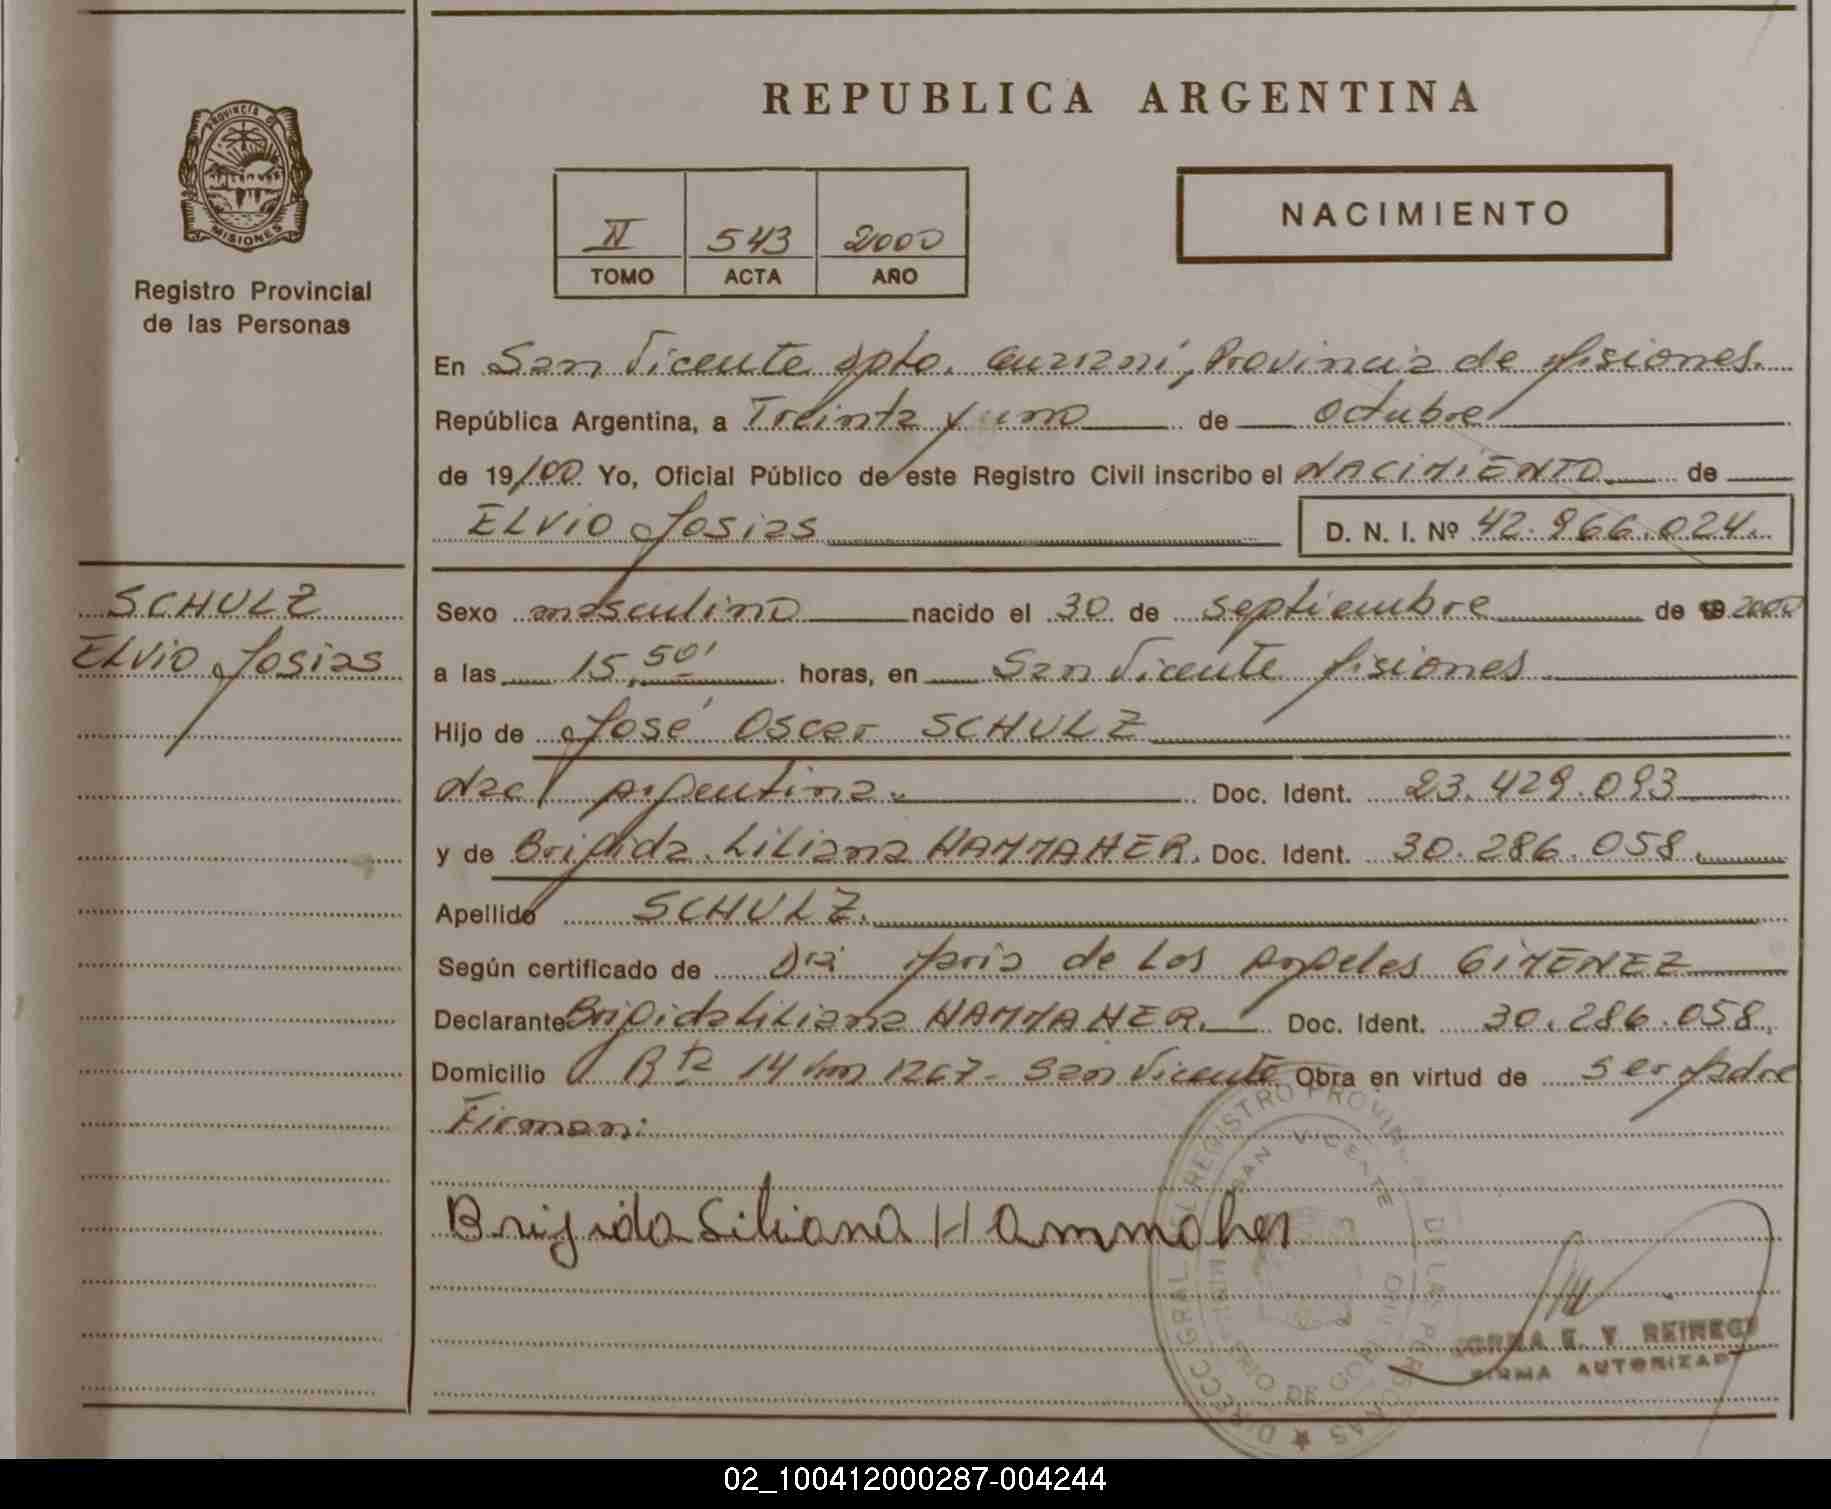 REPUBLICA ARGENTINA
PROVINCIA DE
MISIONES
Registro Provincial
de las Personas
II 543 2000
TOMO ACTA AÑO
NACIMIENTO
En San Vicente Dpto. Guaraní, Provincia de Misiones.
República Argentina, a Treinta y uno de Octubre
de 19/00 Yo, Oficial Público de este Registro Civil inscribo el NACIMIENTO de
ELVIO Josias D. N. I. Nº 42.966.024.
SCHULZ
ELVIO Josias
Sexo masculino nacido el 30 de septiembre de 2000
a las 15,50' horas, en San Vicente Misiones
Hijo de José Oscar SCHULZ
Nac/ Argentina. Doc. Ident. 23.429.093
y de Brigida Liliana HAMMAHER. Doc. Ident. 30.286.058.
Apellido SCHULZ.
Según certificado de Dra Maria de Los Angeles GIMENEZ
Declarante Brigida Liliana HAMMAHER. Doc. Ident. 30.286.058.
Domicilio Rta 14 km 1267- San Vicente Obra en virtud de ser Madre
Firman:
Brigida Liliana Hammaher
DIRECC. GRAL. DEL REGISTRO PROVINCIAL DE LAS PERSONAS
SAN VICENTE
MINISTERIO DE GOBIERNO
E. V. REINECK
FIRMA AUTORIZADA
02_100412000287-004244